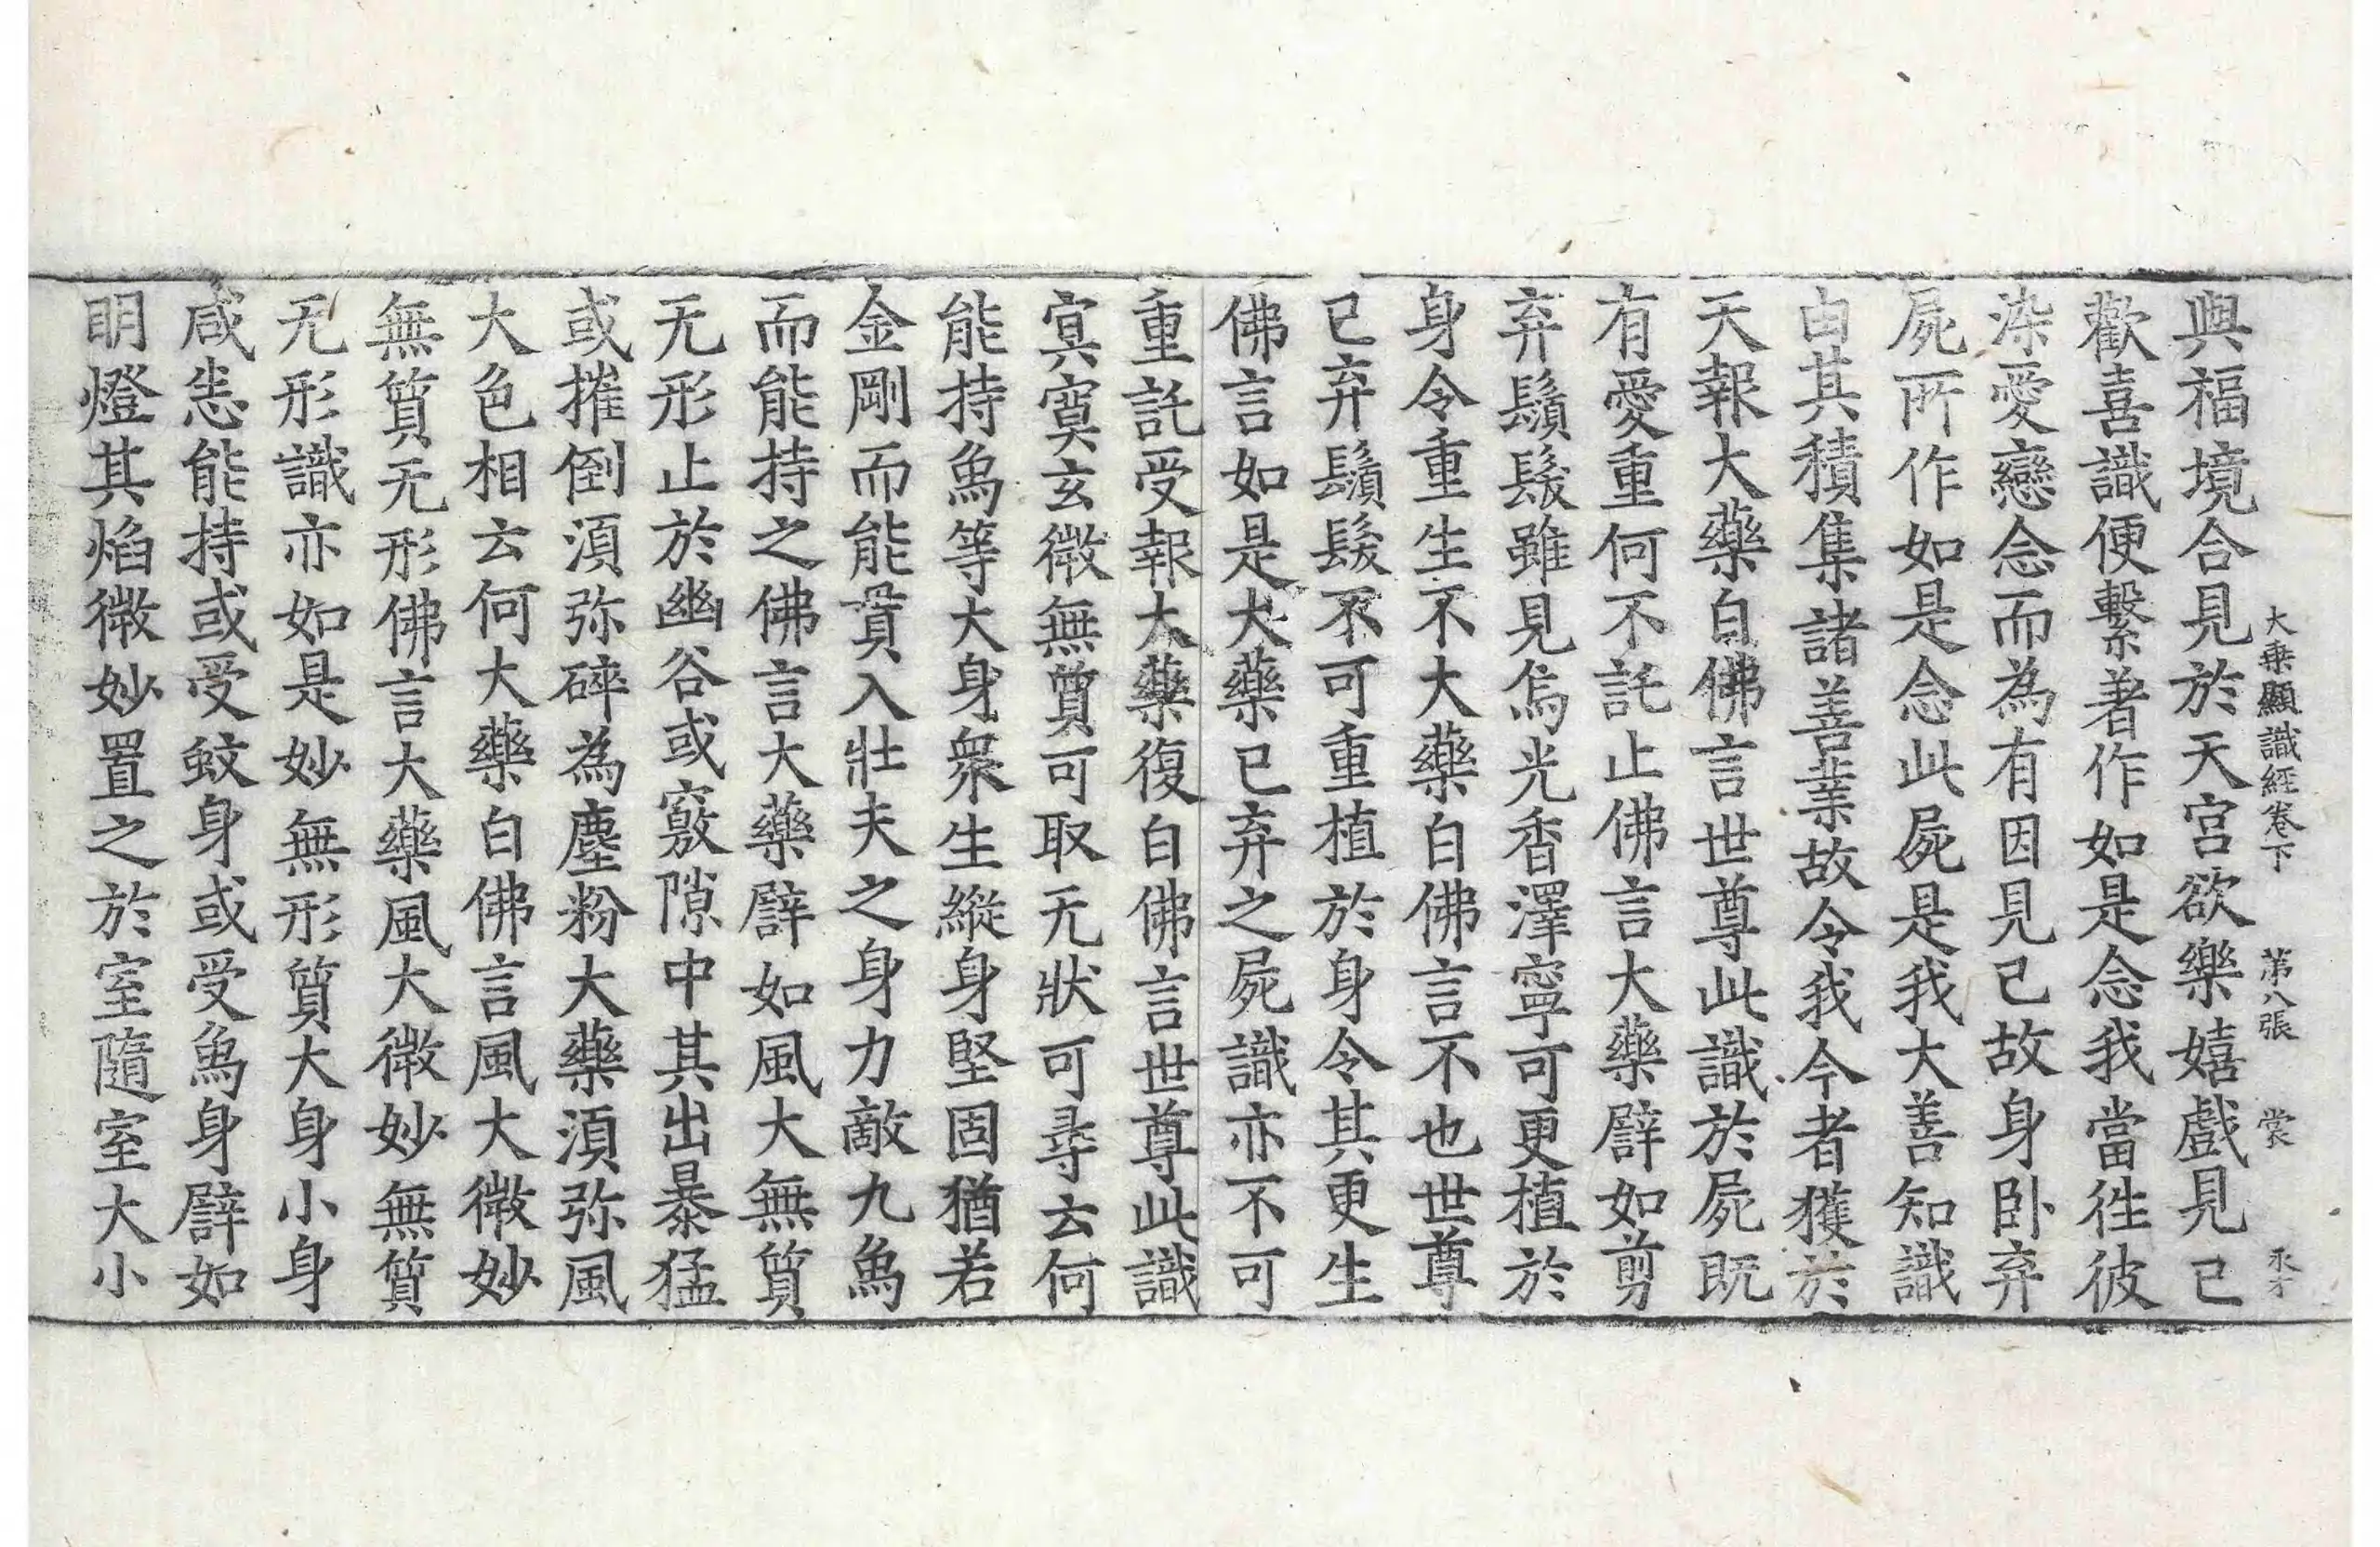 大乗顯識經卷下　第八張　裳　永才
與福境合見於天宮欲樂嬉戲見已
歡喜識便繫著作如是念我當徃彼
染愛戀念而為有因見己故身卧弃
屍所作如是念此屍是我大善知識
由其積集諸善業故令我今者獲於
天報大藥白佛言世尊此識於屍既
有愛重何不託止佛言大藥譬如剪
弃鬚髮雖見烏光香澤寧可更植於
身令重生不大藥白佛言不也世尊
已弃鬚髮不可重植於身令其更生
佛言如是大藥已弃之屍識亦不可
重託受報大藥復白佛言世尊此識
冥寞玄微無質可取无狀可尋云何
能持象等大身衆生縱身堅固猶若
金剛而能貫入壯夫之身力敵九象
而能持之佛言大藥譬如風大無質
无形止於幽谷或竅隙中其出暴猛
或摧倒湏弥碎為塵粉大藥湏弥風
大色相云何大藥白佛言風大微妙
無質无形佛言大藥風大微妙無質
无形識亦如是妙無形質大身小身
咸悉能持或受蚊身或受象身譬如
明燈其焰微妙置之於室隨室大小